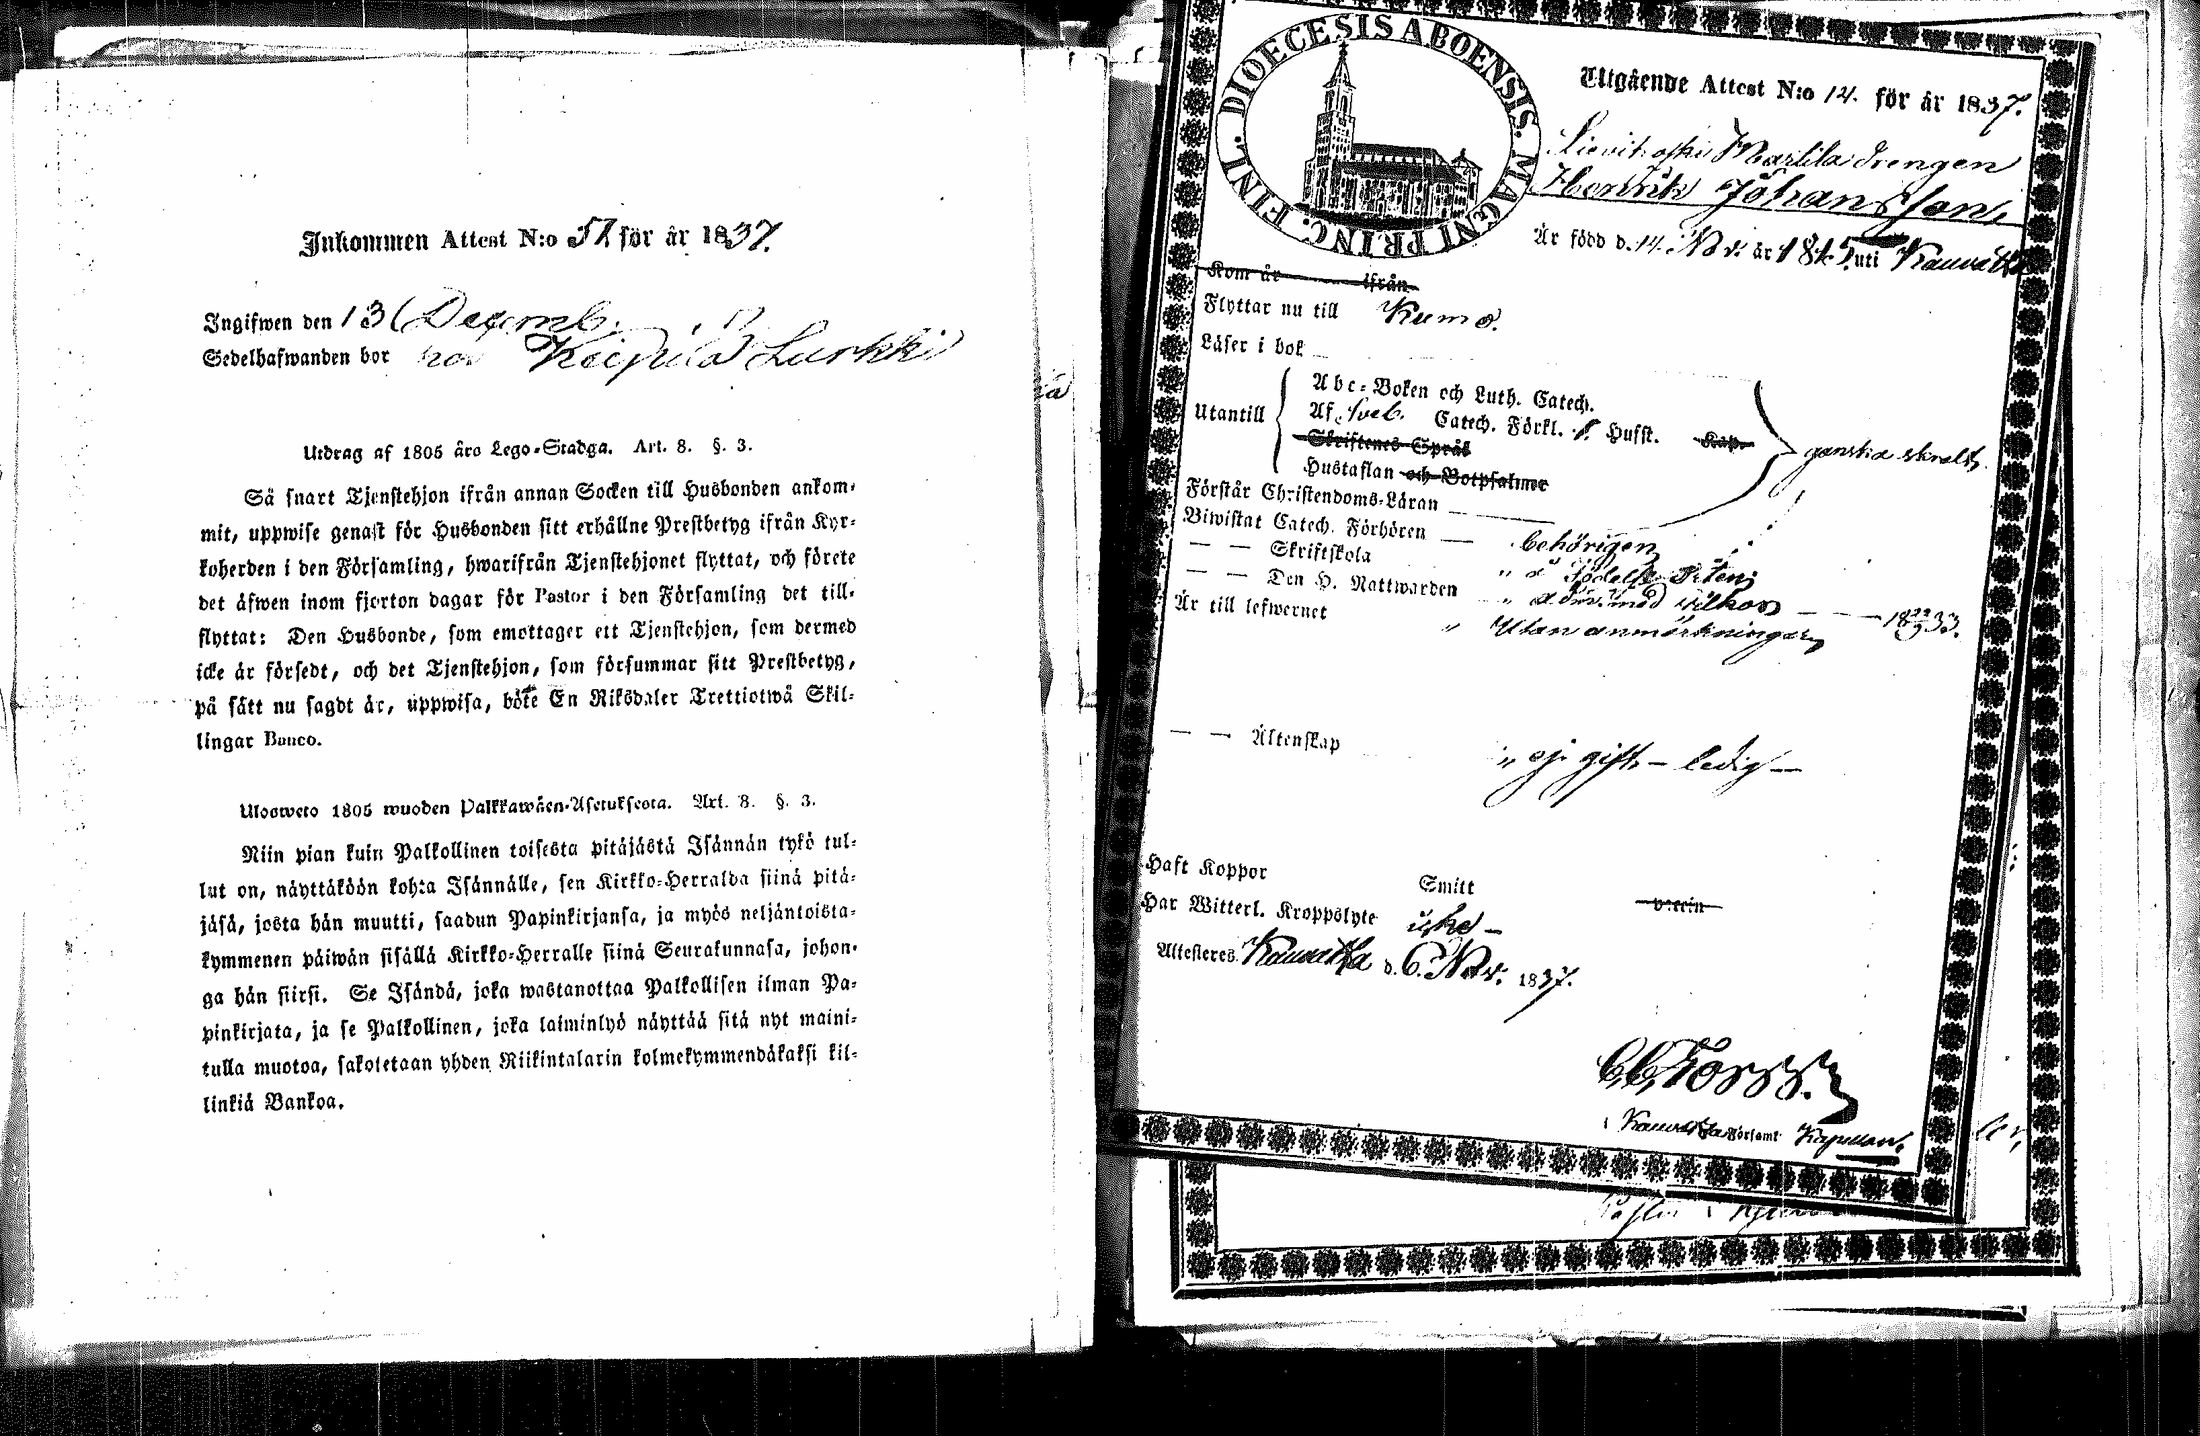 Inkommen Attest N:o 57 för år 1837.
Ingifwen den 13 Decemb.
Sedelhafwanden bor hos Keipilä Lurkki
Utdrag af 1805 års Lego-Stadga. Art. 8. §. 3.
Så snart Tjenstehjon ifrån annan Socken till Husbonden ankom-
mit, uppwise genast för Husbonden sitt erhållne Prestbetyg ifrån Kyr-
koherden i den Församling, hwarifrån Tjenstehjonet flyttat, och förete
det äfwen inom fjorton dagar för Pastor i den Församling det till-
flyttat: Den Husbonde, som emottager ett Tjenstehjon, som dermed
icke är försedt, och det Tjenstehjon, som försummar sitt Prestbetyg,
på sätt nu sagdt är, uppwisa, böte En Riksdaler Trettiotwå Skil-
lingar Banco.
Ulosweto 1805 wuoden Palkkawäen-Asetuksesta. Art. 8. §. 3.
Niin pian kuin Palkollinen toisesta pitäjästä Isännän tykö tul-
lut on, näyttäköön kohta Isännälle, sen Kirkko-Herralda siinä pitä-
jäsä, josta hän muutti, saadun Papinkirjansa, ja myös neljäntoista-
kymmenen päiwän sisällä Kirkko-Herralle siinä Seurakunnasa, johon-
ga hän siirsi. Se Isändä, joka wastanottaa Palkollisen ilman Pa-
pinkirjata, ja se Palkollinen, joka laiminlyö näyttää sitä nyt maini-
tulla muotoa, sakotetaan yhden Riikintalarin kolmekymmendäkaksi kil-
linkiä Bankoa.
DIOECESIS ABOENSIS. MAGNI PRINC. FINL.
Utgående Attest N:o 14. för år 1837.
Lievikoski Marttila drengen
Henrik Johansson,
Är född d. 14. Nov. år 1815. uti Kauvatsa
Kom år ifrån
Flyttar nu till Kumo.
Läser i bok
Utantill
Abc-Boken och Luth. Catech.
Af Sveb. Catech. Förkl. Hufst. Kap.
Skriftenes Språk
Hustaflan och Botpsalmer
ganska skralt.
Förstår Christendoms-Läran
Biwistat Catech. Förhören — behörigen
— — Skriftskola " å Födelse Orten
— — Den H. Nattwarden — — 18 22/9 33.
Är till lefwernet " Utan anmärkningar
— — Ältenskap " ej gift — ledig —
Haft Koppor Smitt vaccin
Har Witterl. Kroppslyte icke —
Attesteres. Kauvatsa d. 6. Nov. 1837.
i Kauvatsa Församl. Kapellan.